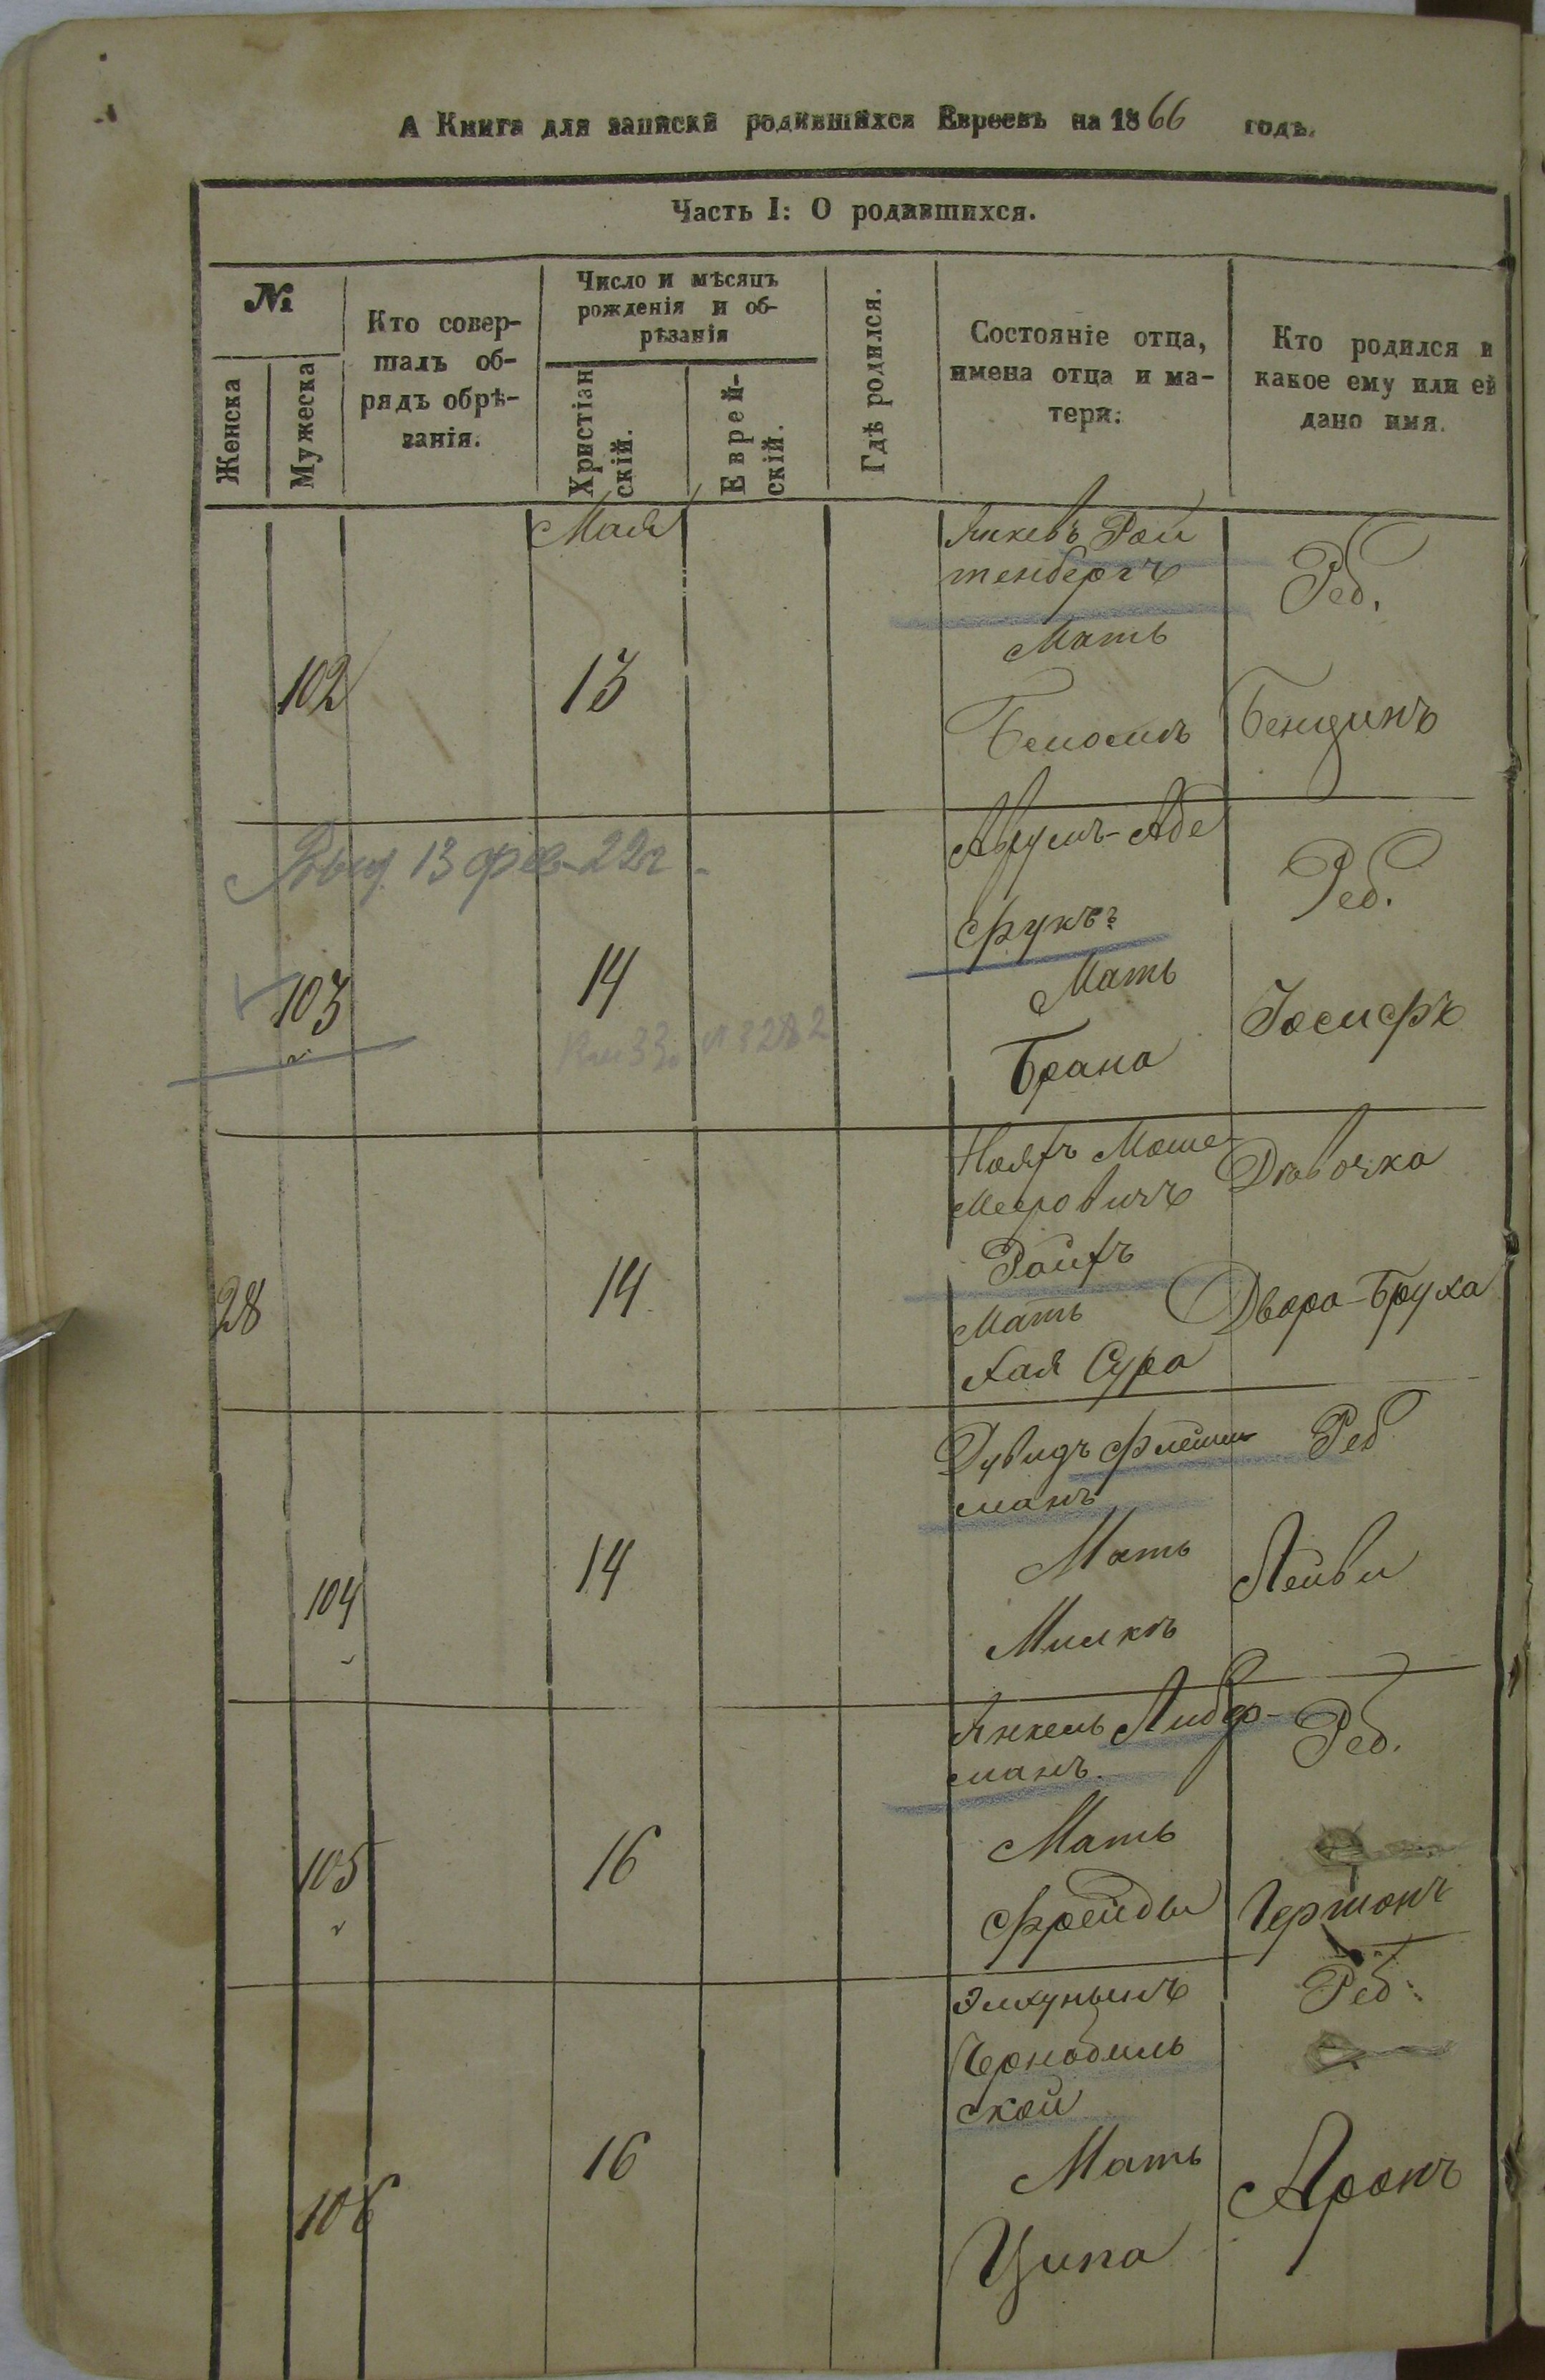 А Книга для записки родившихся Евреевъ на 1866 годъ.
Часть I: О родившихся.
№
Женска
Мужеска
Кто совер-
шалъ об-
рядъ обрѣ-
занія.
Число и мѣсяцъ
рожденія и об-
рѣзанія
Христіан
скій.
Еврей-
скій.
Гдѣ родился.
Состояніе отца,
имена отца и ма-
тери.
Кто родился и
какое ему или ей
дано имя.
Мая
102
13
Янкевъ Рой
тенбергъ
Мать
Реб.
Бенциинъ
13 фев 22г.
103
14
Аврумъ-Абе
Фукъ
Мать
Брана
Реб.
Іосифъ
28
14
Моше
Мееровичъ
Ройхъ
Мать
Хая Сура
Дѣвочка
Двора-Бруха
104
14
Дувидъ Флейш
манъ
Мать
Милкѣ
Реб
Лейви
105
16
Янкель Либер-
манъ.
Мать
Фрейды
Реб.
Гершонъ
106
16
Элхунынъ
Чернобиль
ской
Мать
Ципа
Реб.
Аронъ